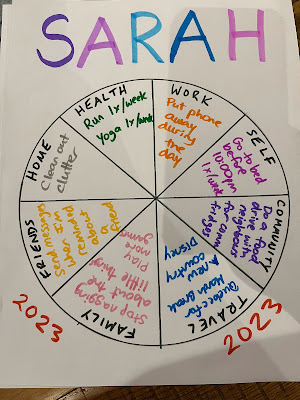 SARAH
HEALTH
Run 1x/week
Yoga 1x/week
WORK
Put phone
away
during
the
day
SELF
Go to bed
before
10:00pm
1x/week
COMMUNITY
Do a food
drive with
neighbours
for comm
fridges
TRAVEL
Disney
A new
country
Quebec for
March Break
FAMILY
Stop nagging
about the
little things
Play
more
games
FRIENDS
Send messages
when I am
about
a
friend
HOME
Clean out
clutter
2023
2023